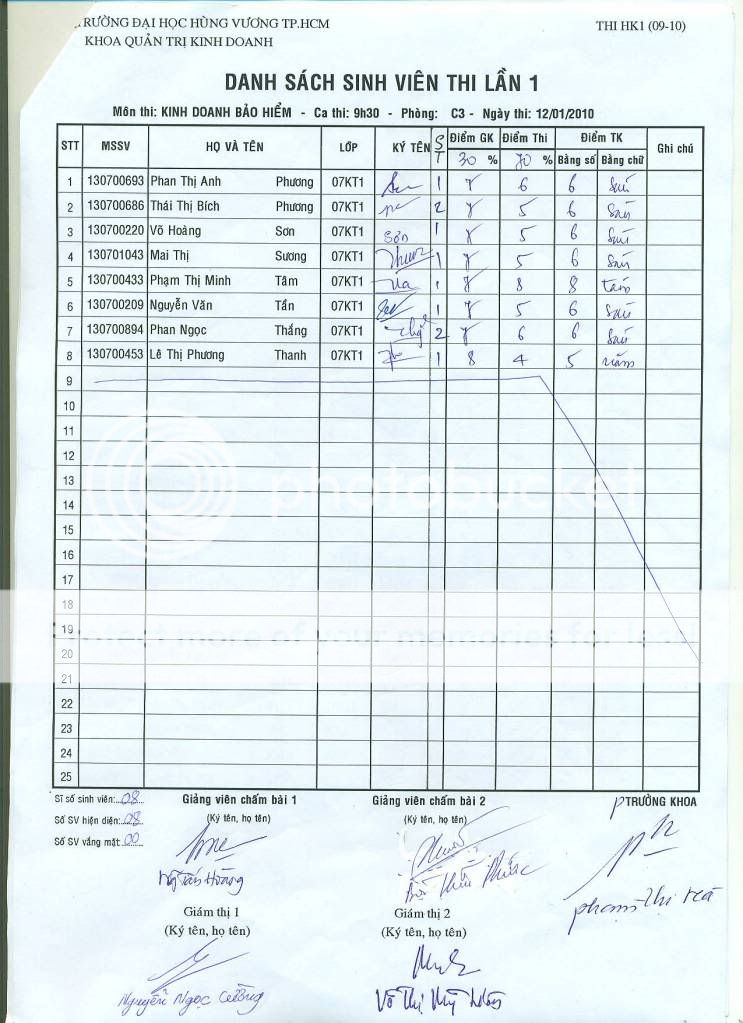 TRƯỜNG ĐẠI HỌC HÙNG VƯƠNG TP.HCM
THI HK1 (09-10)
KHOA QUẢN TRỊ KINH DOANH
DANH SÁCH SINH VIÊN THI LẦN 1
Môn thi: KINH DOANH BẢO HIỂM - Ca thi: 9h30 - Phòng: C3 - Ngày thi: 12/01/2010
STT MSSV HỌ VÀ TÊN LỚP KÝ TÊN ST Điểm GK Điểm Thi Điểm TK Ghi chú
30 % 70 % Bằng số Bằng chữ
1 130700693 Phan Thị Anh Phương 07KT1 1 7 6 6 Sáu
2 130700686 Thái Thị Bích Phương 07KT1 2 7 5 6 Sáu
3 130700220 Võ Hoàng Sơn 07KT1 Sơn 1 7 5 6 Sáu
4 130701043 Mai Thị Sương 07KT1 1 7 5 6 Sáu
5 130700433 Phạm Thị Minh Tâm 07KT1 1 7 8 8 tám
6 130700209 Nguyễn Văn Tấn 07KT1 1 7 5 6 Sáu
7 130700894 Phan Ngọc Thắng 07KT1 2 7 6 6 Sáu
8 130700453 Lê Thị Phương Thanh 07KT1 1 8 4 5 năm
9
10
11
12
13
14
15
16
17
18
19
20
21
22
23
24
25
photobucket
Protect more of your memories for less!
Sĩ số sinh viên: 08 Giảng viên chấm bài 1 Giảng viên chấm bài 2 P TRƯỞNG KHOA
Số SV hiện diện: 08 (Ký tên, họ tên) (Ký tên, họ tên)
Số SV vắng mặt: 00
Ng Tấn Hoàng
Phạm Thị
Giám thị 1 Giám thị 2
(Ký tên, họ tên) (Ký tên, họ tên)
Nguyễn Ngọc Cường Võ Thị Mỹ